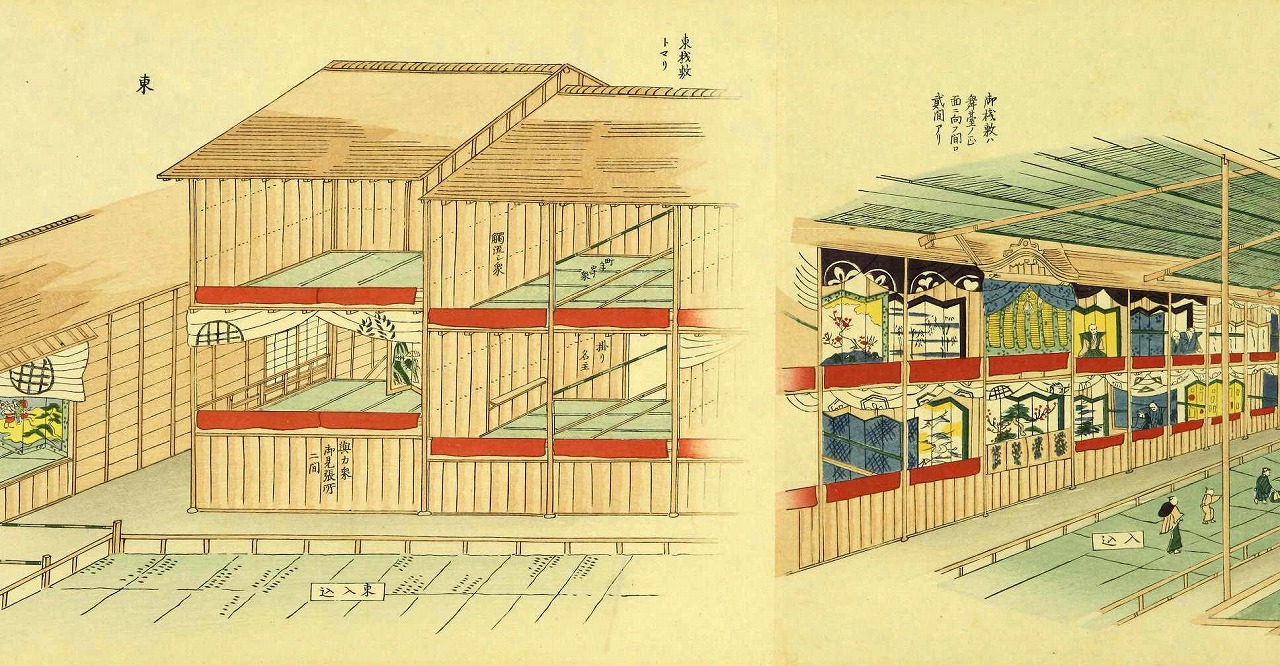 東
東桟敷
トマリ
觸流シ衆
掛リ
名主
與力衆
御見張所
二間
東入込
御桟敷ハ
舞臺ノ正
面ニ向フ間口
貳間アリ
入込